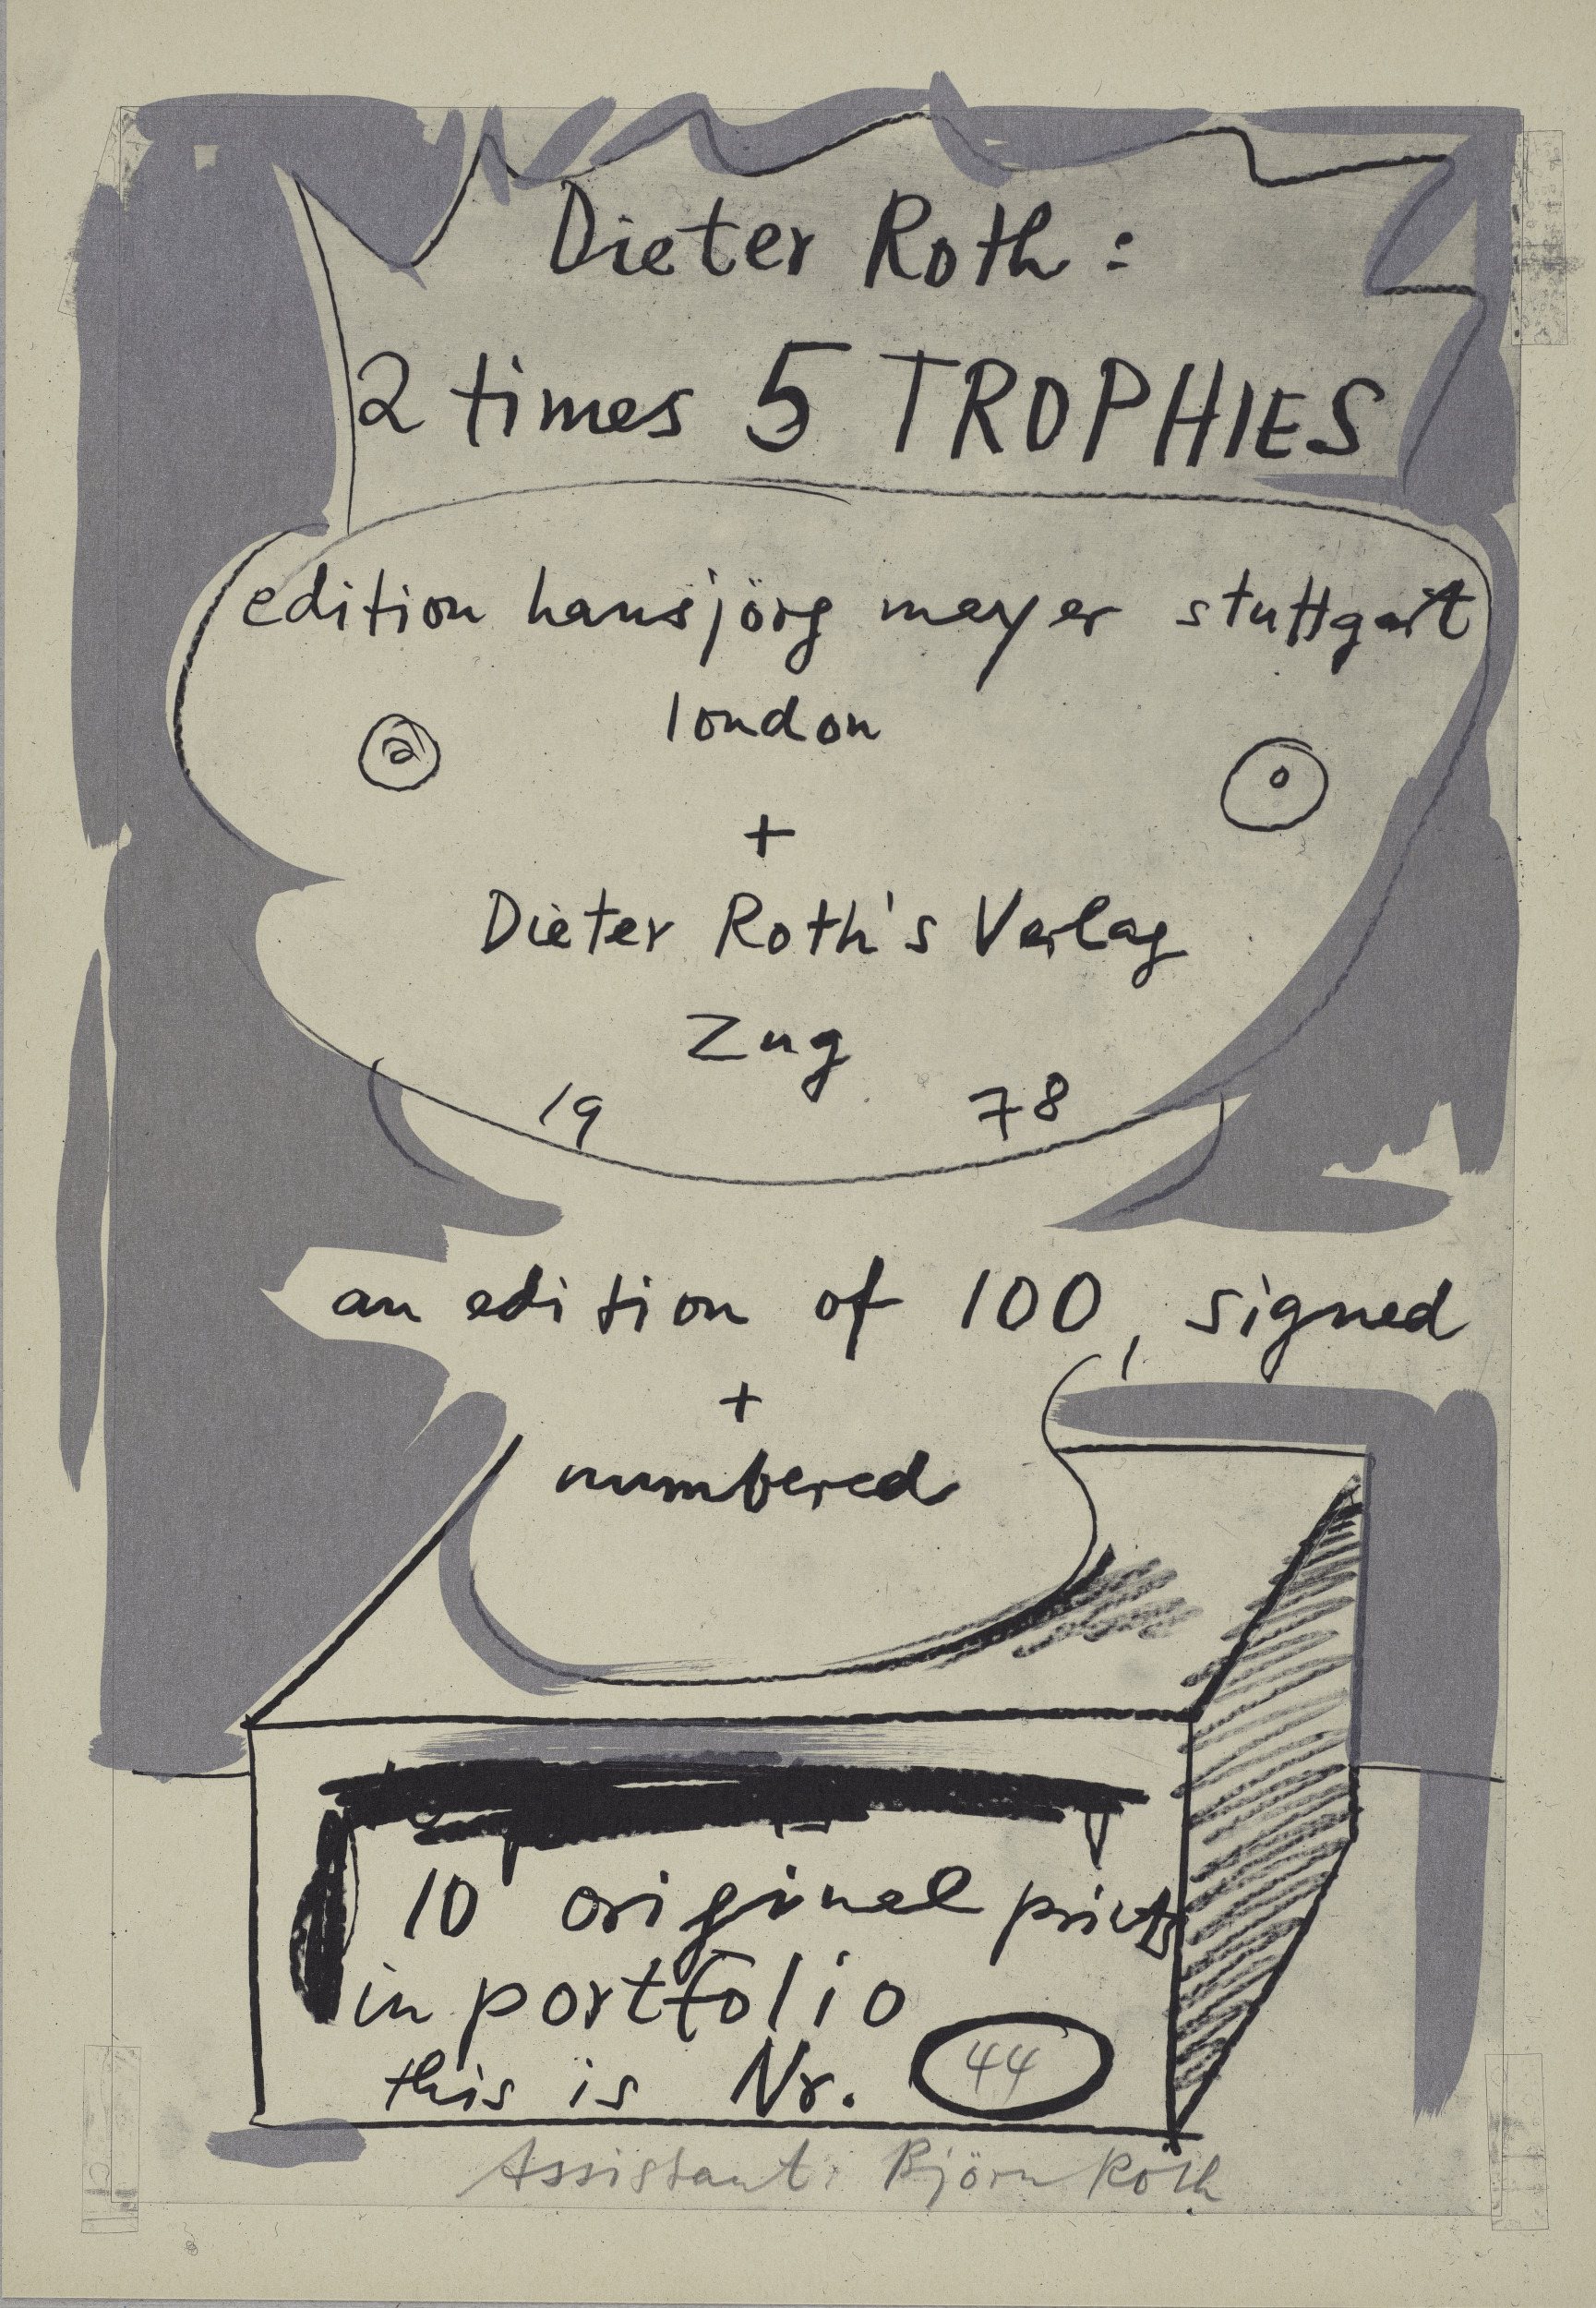 Dieter Roth:
2 times 5 TROPHIES
edition hansjörg mayer stuttgart
london
+
Dieter Roth's Verlag
Zug
19 78
an edition of 100, signed
+
numbered
10 original prints
in portfolio
this is Nr. 44
Assistant: Björn Roth